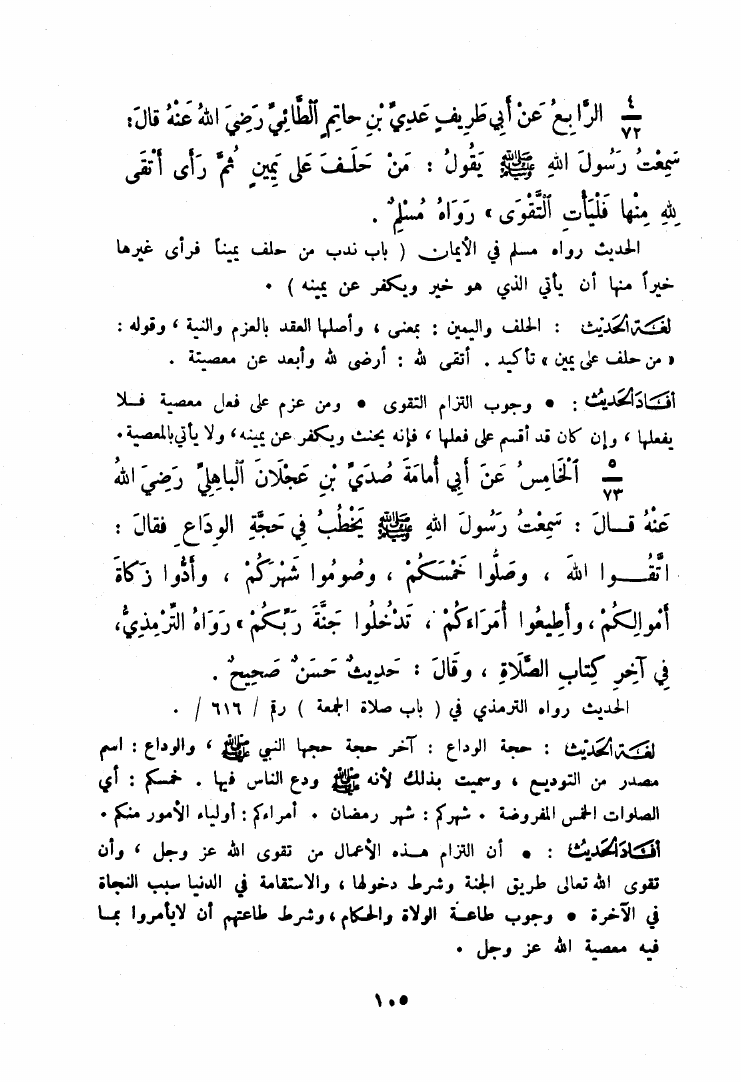 ٤/٧٢ الرَّابِعُ عَنْ أَبِي طَرِيفٍ عَدِيِّ بْنِ حاتِمٍ الْطَّائِيِّ رَضِيَ اللهُ عَنْهُ قالَ:
سَمِعْتُ رَسُولَ اللهِ ﷺ يَقُولُ : مَنْ حَلَفَ عَلى يَمِينٍ ثُمَّ رَأَى أَتْقَى
لِلهِ مِنْها فَلْيَأْتِ التَّقْوَى » رَوَاهُ مُسْلِمٌ .
الحديث رواه مسلم في الأيمان ( باب ندب من حلف يميناً فرأى غيرها
خيراً منها أن يأتي الذي هو خير ويكفر عن يمينه ) .
لغَة الحَديث : الحلف واليمين : بمعنى ، وأصلها العقد بالعزم والنية ، وقوله :
« من حلف على يمين » تأكيد . أتقى لله : أرضى لله وأبعد عن معصيتة .
أفَادَ الحَديث : • وجوب التزام التقوى • ومن عزم على فعل معصية فلا
يفعلها ، وإن كان قد أقسم على فعلها ، فإنه يحنث ويكفر عن يمينه، ولا يأتي بالمعصية.
٥/٧٣ الْخَامِسُ عَنَ أَبِي أُمامَةَ صُدَيِّ بْنِ عَجْلَانَ الْباهِلِيِّ رَضِيَ اللهُ
عَنْهُ قالَ : سَمِعْتُ رَسُولَ اللهِ ﷺ يَخْطُبُ فِي حَجَّةِ الوِدَاعِ فقالَ :
اتَّقُوا اللهَ ، وَصَلُّوا خَمْسَكُمْ ، وَصُومُوا شَهْرَكُمْ ، وَأَدُّوا زَكَاةَ
أَمْوالِكُمْ ، وَأَطِيعُوا أُمَرَاءَكُمْ ، تَدْخُلُوا جَنَّةَ رَبِّكُمْ » رَوَاهُ التِّرْمِذِيُّ،
فِي آخِرِ كِتابِ الصَّلَاةِ ، وَقَالَ : حَدِيثٌ حَسَنٌ صَحِيحٌ .
الحديث رواه الترمذي في ( باب صلاة الجمعة ) رقم / ٦١٦ / .
لغَة الحَديث : حجة الوداع : آخر حجة حجها النبي ﷺ ، والوداع : اسم
مصدر من التوديع ، وسميت بذلك لأنه ﷺ ودع الناس فيها . خمسكم : أي
الصلوات الخمس المفروضة . شهركم : شهر رمضان . أمراءكم : أولياء الأمور منكم .
أفَادَ الحَديث : • أن التزام هذه الأعمال من تقوى الله عز وجل ، وأن
تقوى الله تعالى طريق الجنة وشرط دخولها ، والاستقامة في الدنيا سبب النجاة
في الآخرة • وجوب طاعة الولاة والحكام ، وشرط طاعتهم أن لايأمروا بما
فيه معصية الله عز وجل .
١٠٥